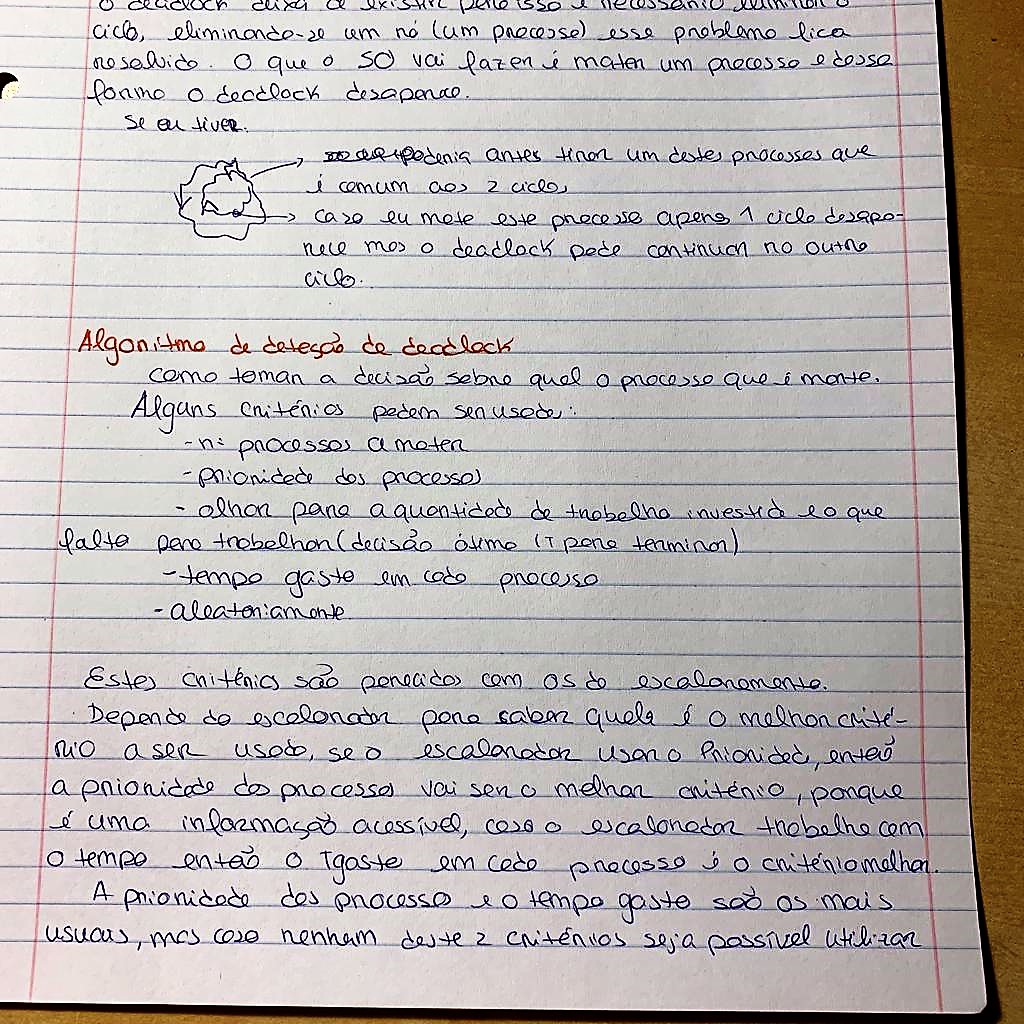 O deadlock deixa de existir para isso é necessário eliminar o
ciclo, eliminando-se um nó (um processo) esse problema fica
resolvido. O que o SO vai fazer é matar um processo e dessa
forma o deadlock desaparece.
Se eu tiver.
poderia antes tirar um destes processos que
é comum aos 2 ciclos
caso eu mate este processo apenas 1 ciclo desapa-
rece mas o deadlock pode continuar no outro
ciclo.
Algoritmo de deteção de deadlock
como tomar a decisão sobre qual o processo que é morto.
Alguns critérios podem ser usados:
- nº processos a matar
- prioridade dos processos
- olhar para a quantidade de trabalho investida e o que
falta para trabalhar (decisão ótima (T para terminar)
- tempo gasto em cada processo
- aleatoriamente
Estes critérios são parecidos com os do escalonamento.
Depende do escalonador para saber qual é o melhor crité-
rio a ser usado, se o escalonador usar o Prioridad, então
a prioridade do processo vai ser o melhor critério, porque
é uma informação acessível, caso o escalonador trabalhe com
o tempo então o Tgasto em cada processo é o critério melhor.
A prioridade dos processo e o tempo gasto são os mais
usuais, mas caso nenham deste 2 critérios seja possível utilizar